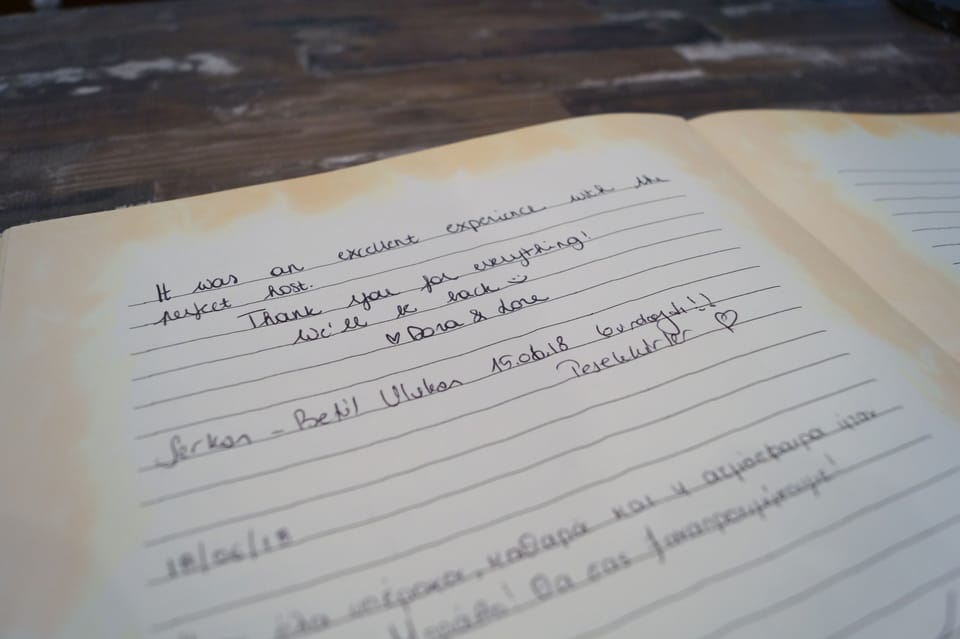 It was an excellent experience with the
perfect host.
Thank you for everything!
We'll be back
♡ Dora & Lore
Serkan - Betül Ulukan 15.06.18 burdaydı!!
Teşekkürler ♡
18/06/18
όλα υπέροχα, καθαρά και η ατμόσφαιρα ήταν
Θα σας ξαναπροτιμήσουμε!